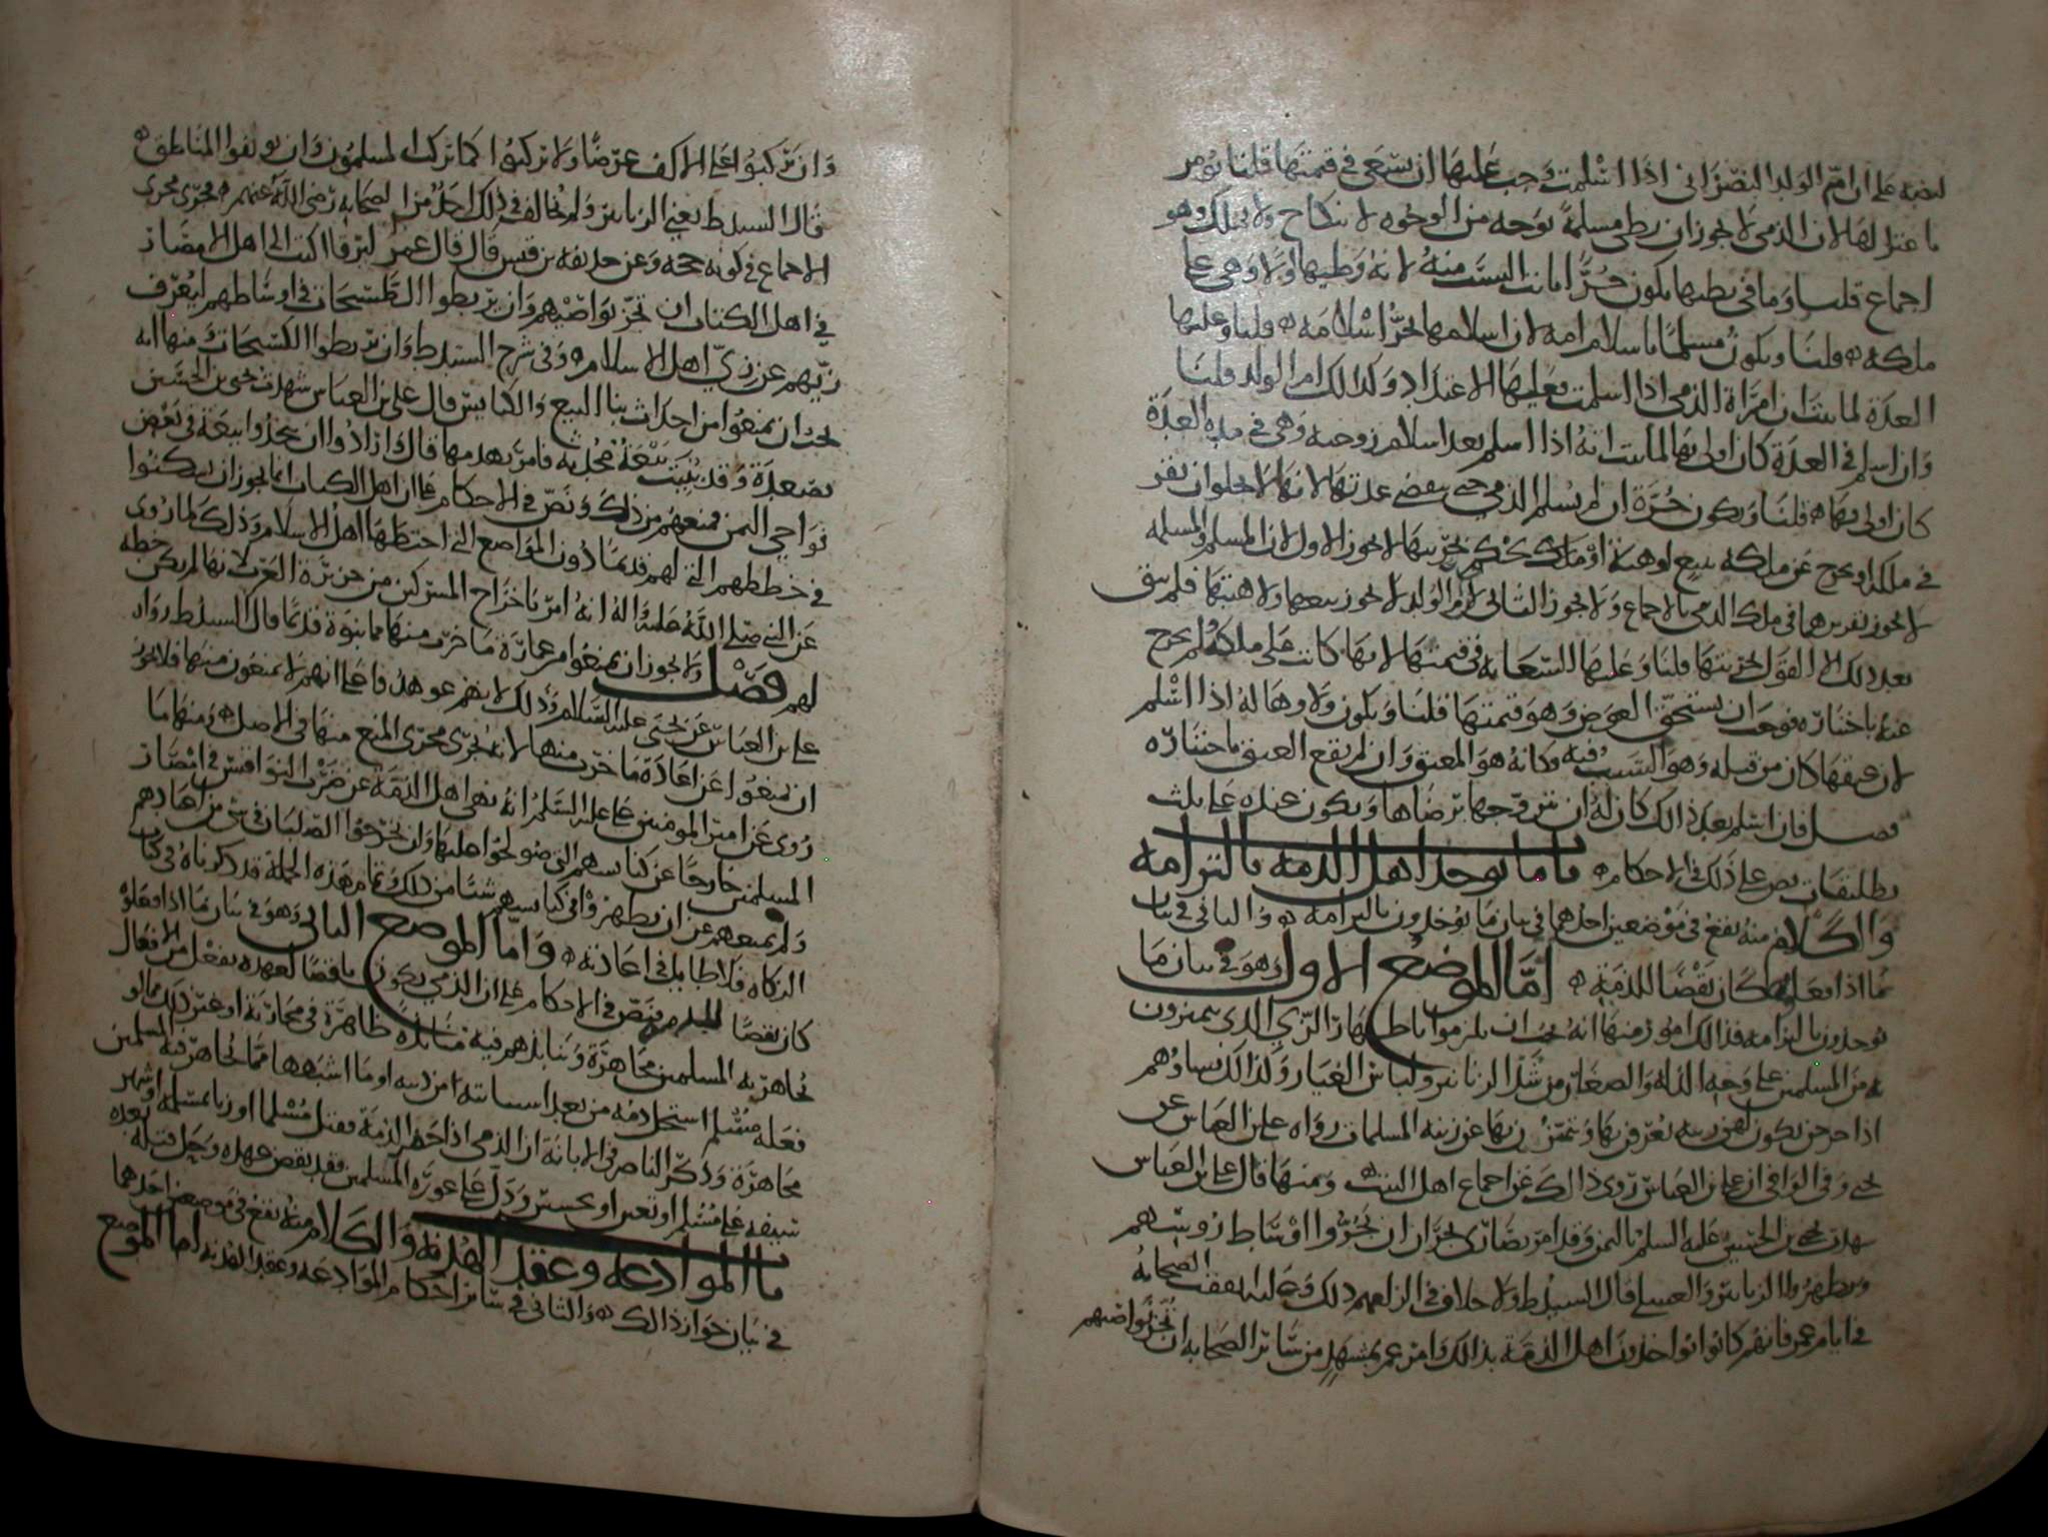 لنصه على ان ام الولد النصراني اذا اسلمت وجب عليها ان تسعى في قيمتها قلنا يومر
ما عتزالها لان الذمي لا يجوز ان يطى مسلمة بوجه من الوجوه لا بنكاح ولا بملك وهو
اجماع قلنا وما في بطنها يكون حرا ثابت النسب منه لانه وطيها اولا وهي على
ملكه قلنا ويكون مسلما باسلام امه لان اسلامها يجر اسلامه قلنا وعليها
العدة لما بينا ان امراة الذمي اذا اسلمت فعليها الاعتداد وكذلك ام الولد قلنا
وان اسلم في العدة كان اولى بها لما ثبت انه اذا اسلم بعد اسلام زوجته وهي في مدة العدة
كان اولى بها قلنا وتكون حرة ان لم يسلم الذمي حتى تنقضي عدتها لانها لا يخلو ان تقر
في ملكه او يخرج عن ملكه ببيع او هبة او ملك يحكم بحريتها لا يجوز الاول لان المسلم والمسلمة
لا يجوز تقريرهما في ملك الذمي بالاجماع ولا يجوز الثاني لان ام الولد لا يجوز بيعها ولا هبتها فلم يبق
بعد ذلك الا القول بحريتها قلنا وعليها السعاية في قيمتها لانها كانت على ملكه لم يخرج
عنه باختياره فوجب ان يستحق العوض وهو قيمتها قلنا ويكون ولاوها له اذا اسلم
لان عتقها كان من قبله وهو السبب فيه وكانه هو المعتق وان لم يقع العتق باختياره
فصل فان اسلم بعد ذالك كان له ان يتزوجها برضاها ويكون عنده على ثلث
تطليقات نص على ذلك في الاحكام باب ما يوخذ اهل الذمة بالتزامه
والكلام منه يقع في موضعين احدهما في بيان ما يوخذون بالتزامه والثاني في بيان
ما اذا فعلوه كان نقضا للذمة اما الموضع الاول وهو في بيان ما
يوخذون بالتزامه فذالك امور منها انه يجب ان يلزموا باظهار الزي الذي يتميزون
به من المسلمين على وجه الذلة والصغار من شد الزنانير ولباس الغيار وكذالك نساوهم
اذا خرجن يكون لهن زينة يعرفن بها ويتميزن بها عن زينة المسلمات رواه علي بن العباس عن
يحيى وفي الوافي ان علي بن العباس روى ذالك عن اجماع اهل البيت ومنها قال علي بن العباس
شهدت يحيى بن الحسين عليه السلم باليمن وقد امر نصارى نجران ان يجزوا اوساط رؤسهم
ويظهروا الزنانير والعسلي قال السيد ط ولا خلاف في الزامهم ذلك وعليه اتفقت الصحابة
في ايام عمر فانهم كانوا يواخذون اهل الذمة بذالك وامر عمر بمشهد من سائر الصحابة ان تجز نواصيهم
وان يركبوا على الاكف عرضا ولا يركبوا كما تركب المسلمون وان يوثقوا المناطق
قال السيد ط يعني الزنانير ولم يخالف في ذلك احد من الصحابة رضي الله عنهم فجرى مجرى
الاجماع في كونه حجة وعن حذيفة بن قيس قال قال عمر ليرفا اكتب الى اهل الامصار
في اهل الكتاب ان تجز نواصيهم وان يربطوا الكستيجات في اوساطهم ليعرف
زيهم عن زي اهل الاسلام وفي شرح السيد ط وان يربطوا الكستيجات ومنها انه
يجب ان يمنعوا من احداث بنا البيع والكنايس قال علي بن العباس شهدت يحيى بن الحسين
بصعدة وقد بنيت بيعة محدثة فامر بهدمها قال وارادوا ان يتخذوا بيعة في بعض
نواحي اليمن فمنعهم من ذلك ونص في الاحكام على ان اهل الكتاب انما يجوز ان يسكنوا
في خططهم التي لهم قديما دون المواضع التي اختطها اهل الاسلام وذلك لما روى
عن النبي صلى الله عليه واله انه امر باخراج المشركين من جزيرة العرب لانها لم تكن خطة
لهم فصل ولا يجوز ان يمنعوا من عمارة ما خرب منها مما بنوه قديما قال السيد ط رواه
علي بن العباس عن يحيى عليه السلام وذلك لانهم عوهدوا على انهم لا يمنعون منها فلا يجوز
ان يمنعوا عن اعادة ما خرب منها لانه يجري مجرى المنع منها في الاصل ومنها ما
روى عن امير المومنين علي عليه السلم انه نهى اهل الذمة عن ضرب النواقيس في امصار
المسلمين خارجا عن كنايسهم التي صولحوا عليها وان يخرجوا الصلبان في شي من اعيادهم
ولم يمنعهم عن ان يظهروا في كنايسهم شيئا من ذلك وتمام هذه الجملة قد ذكرناه في كتاب
الزكاه فلا طايل في اعادته واما الموضع الثاني وهو في بيان ما اذا فعلوه
كان نقضا للذمة فنص في الاحكام على ان الذمي يكون ناقضا لعهده بفعل من الافعال
يجاهر به المسلمين مجاهرة وينابذهم فيه منابذة ظاهرة في محاربة او غير ذلك مما لو
فعله مسلم استحل دمه من بعد استتابته من ذنبه او ما اشبهها مما يجاهر فيه المسلمين
مجاهرة وذكر الناصر في الابانة ان الذمي اذا خفر الذمة فقتل مسلما او زنا بمسلمة او شهر
سيفه على مسلم او تعين او تجسس ودل على عورة المسلمين فقد نقض عهده وحل قتله
باب الموادعة وعقد الهدنة والكلام منه يقع في موضعين احدهما
في بيان جواز ذالك والثاني في سائر احكام الموادعة وعقد الهدنة اما الموضع